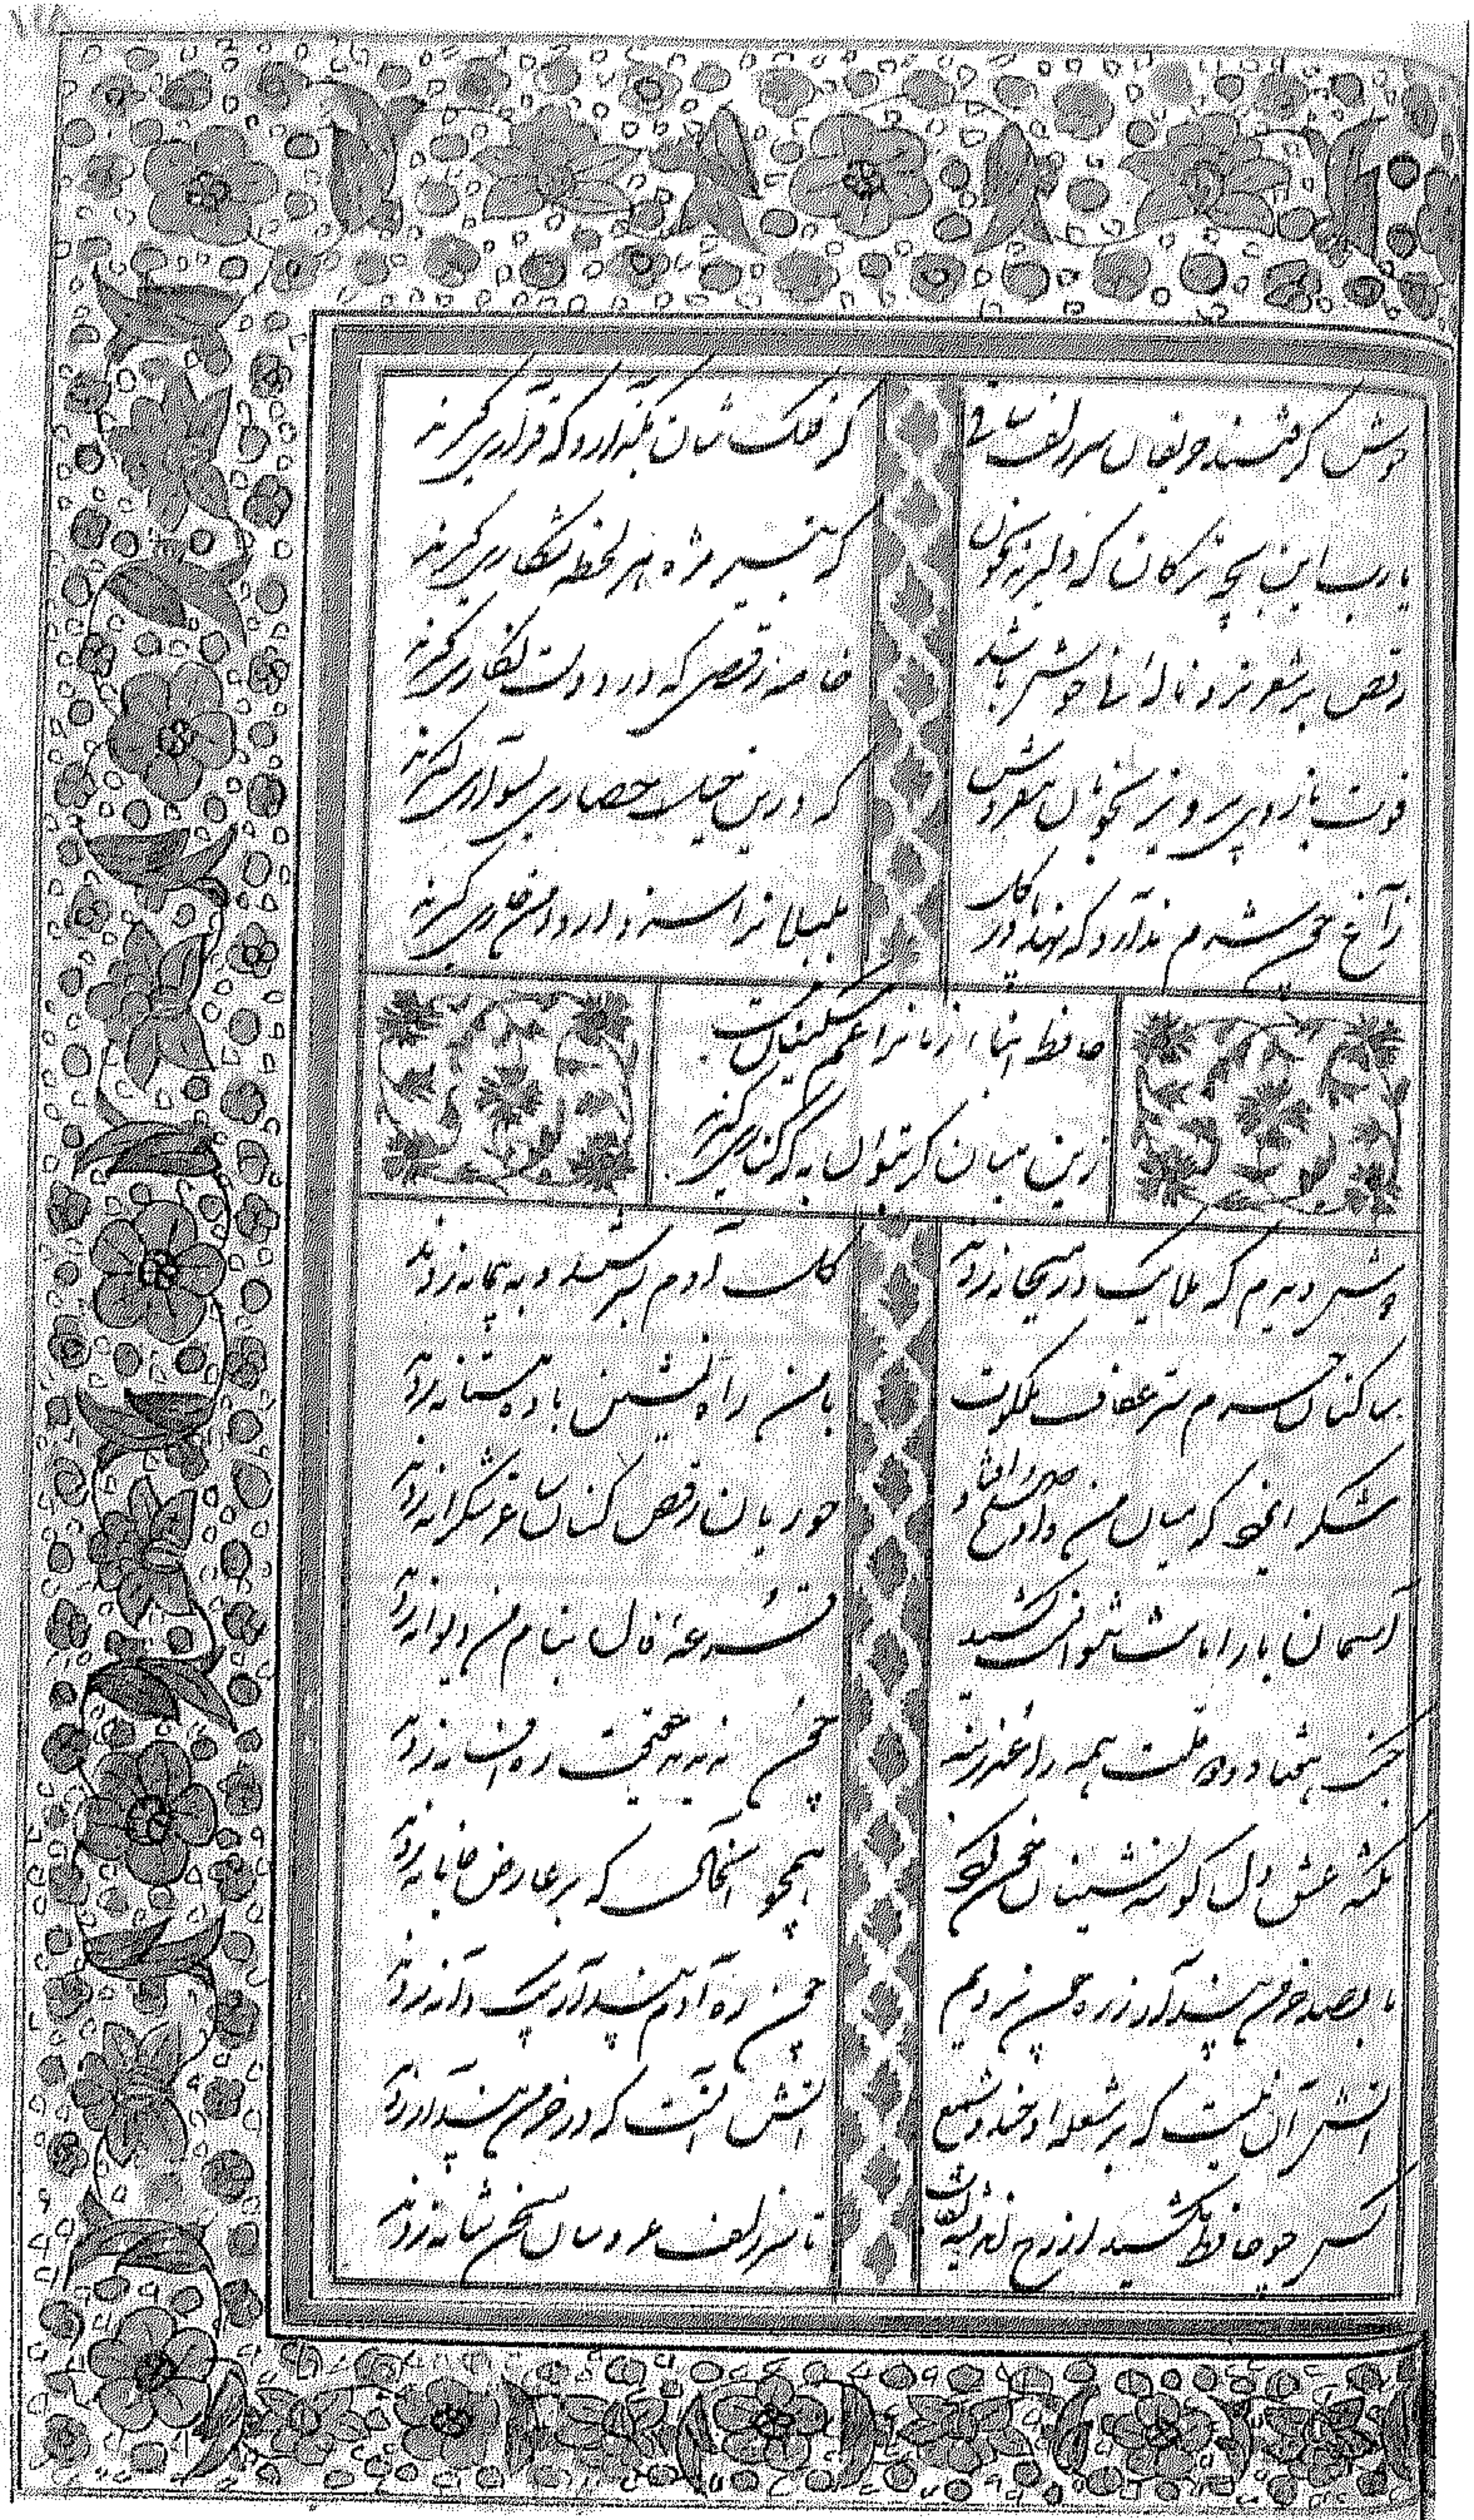 خوش گرفتند حریفان سر زلف ساقی
گر فلک شان بگذارد که قراری گیرند
یارب این بچه ترکان که دلیرند بخون
که بتیر مژه هر لحظه شکاری گیرند
رقص بر شعر تر و ناله نی خوش باشد
خاصه رقصی که درو دست نگاری گیرند
قوت بازوی پرهیز بخوبان مفروش
که درین خیل حصاری بسواری گیرند
زاغ چون شرم ندارد که نهد پا در گل
بلبلانرا سزد ار دامن خاری گیرند
حافظ ابنای زمانرا غم مسکینان نیست
زین میان گر بتوان به که کناری گیرند
دوش دیدم که ملایک در میخانه زدند
گل آدم بسرشتند و به پیمانه زدند
ساکنان حرم ستر عفاف ملکوت
با من راه نشین باده مستانه زدند
شکر ایزد که میان من و او صلح افتاد
حوریان رقص کنان ساغر شکرانه زدند
آسمان بار امانت نتوانست کشید
قرعه فال بنام من دیوانه زدند
جنگ هفتاد و دو ملت همه را عذر بنه
چون ندیدند حقیقت ره افسانه زدند
نکته عشق دل گوشه نشینان خون کرد
همچو آن خال که بر عارض جانانه زدند
ما بصد خرمن پندار ز ره چون نرویم
چون ره آدم پندار بیک دانه زدند
آتش آن نیست که بر شعله او خندد شمع
آتش آنست که در خرمن پندار زدند
کس چو حافظ نکشید از رخ اندیشه نقاب
تا سر زلف عروسان سخن شانه زدند